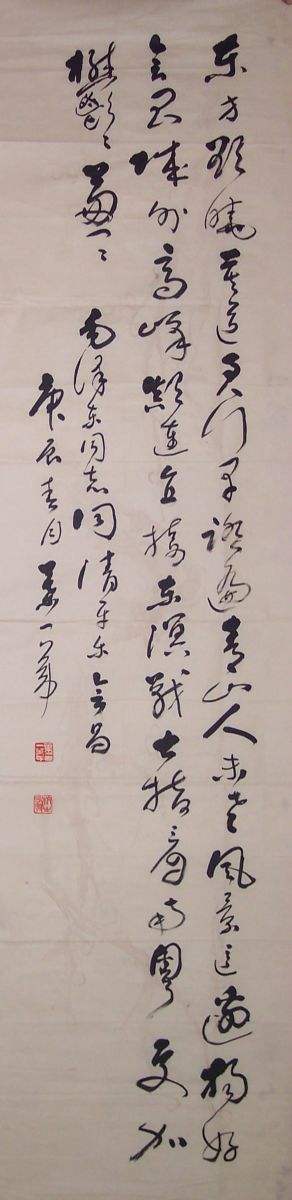 东方欲曉莫道君行早踏遍青山人未老风景这邊独好
会昌城外高峰顛連直接东溟戰士指看南粵更加
鬱〻葱〻
毛泽东同志词清平乐会昌
庚辰春月